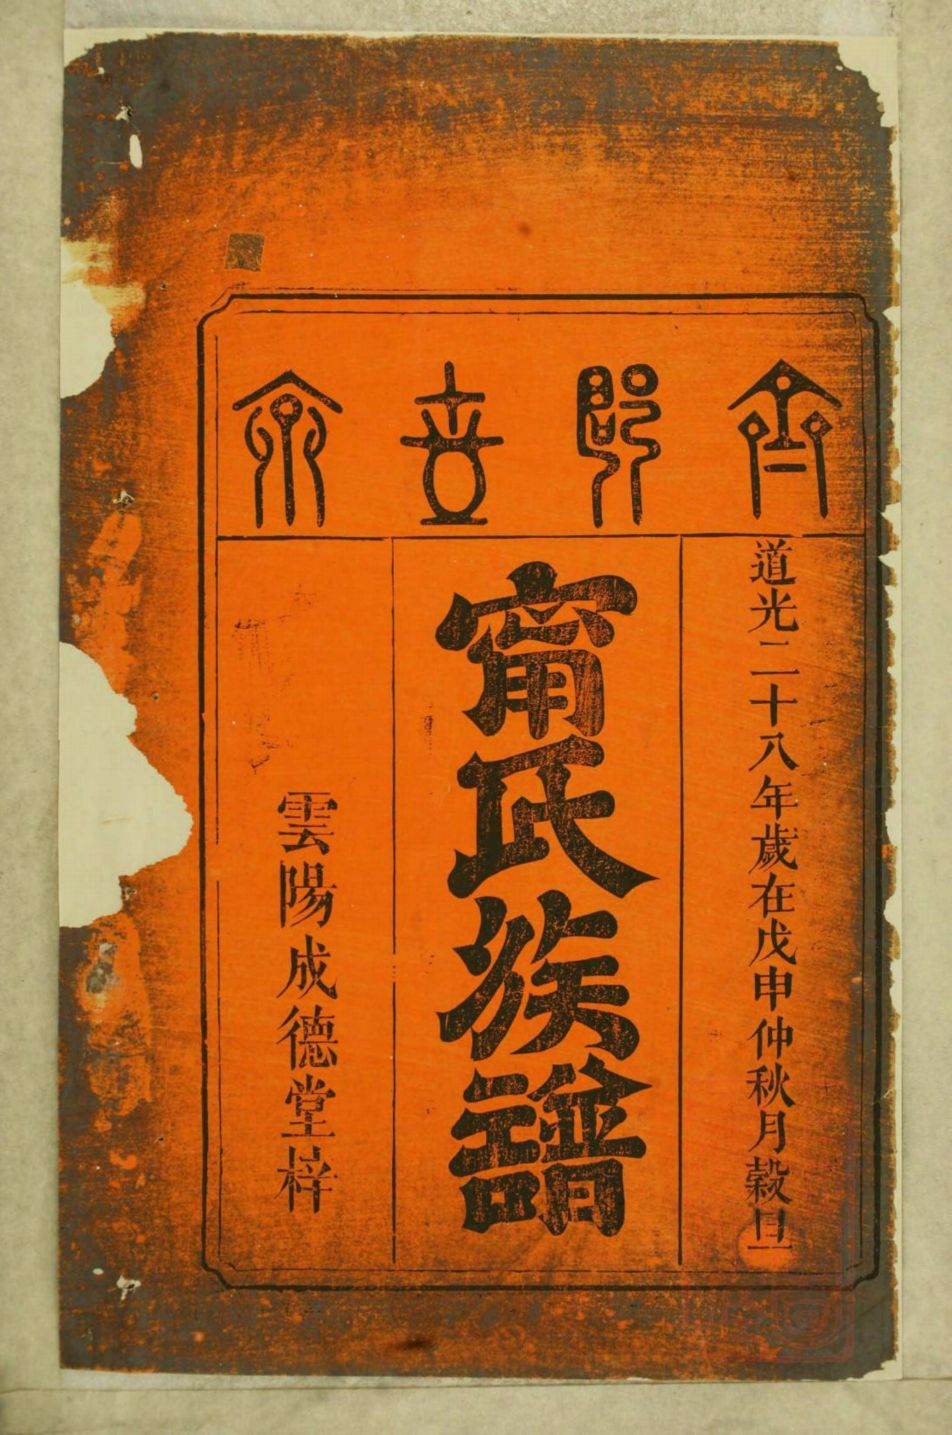 道光二十八年歲在戊申仲秋月穀旦
甯氏族譜
雲陽成德堂梓